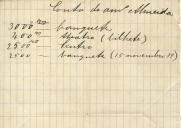 Conta do am.º Almeida
3000 — banquete
400 — theatro (bilhete)
2500 — centro
2500 — banquete (15 novembro